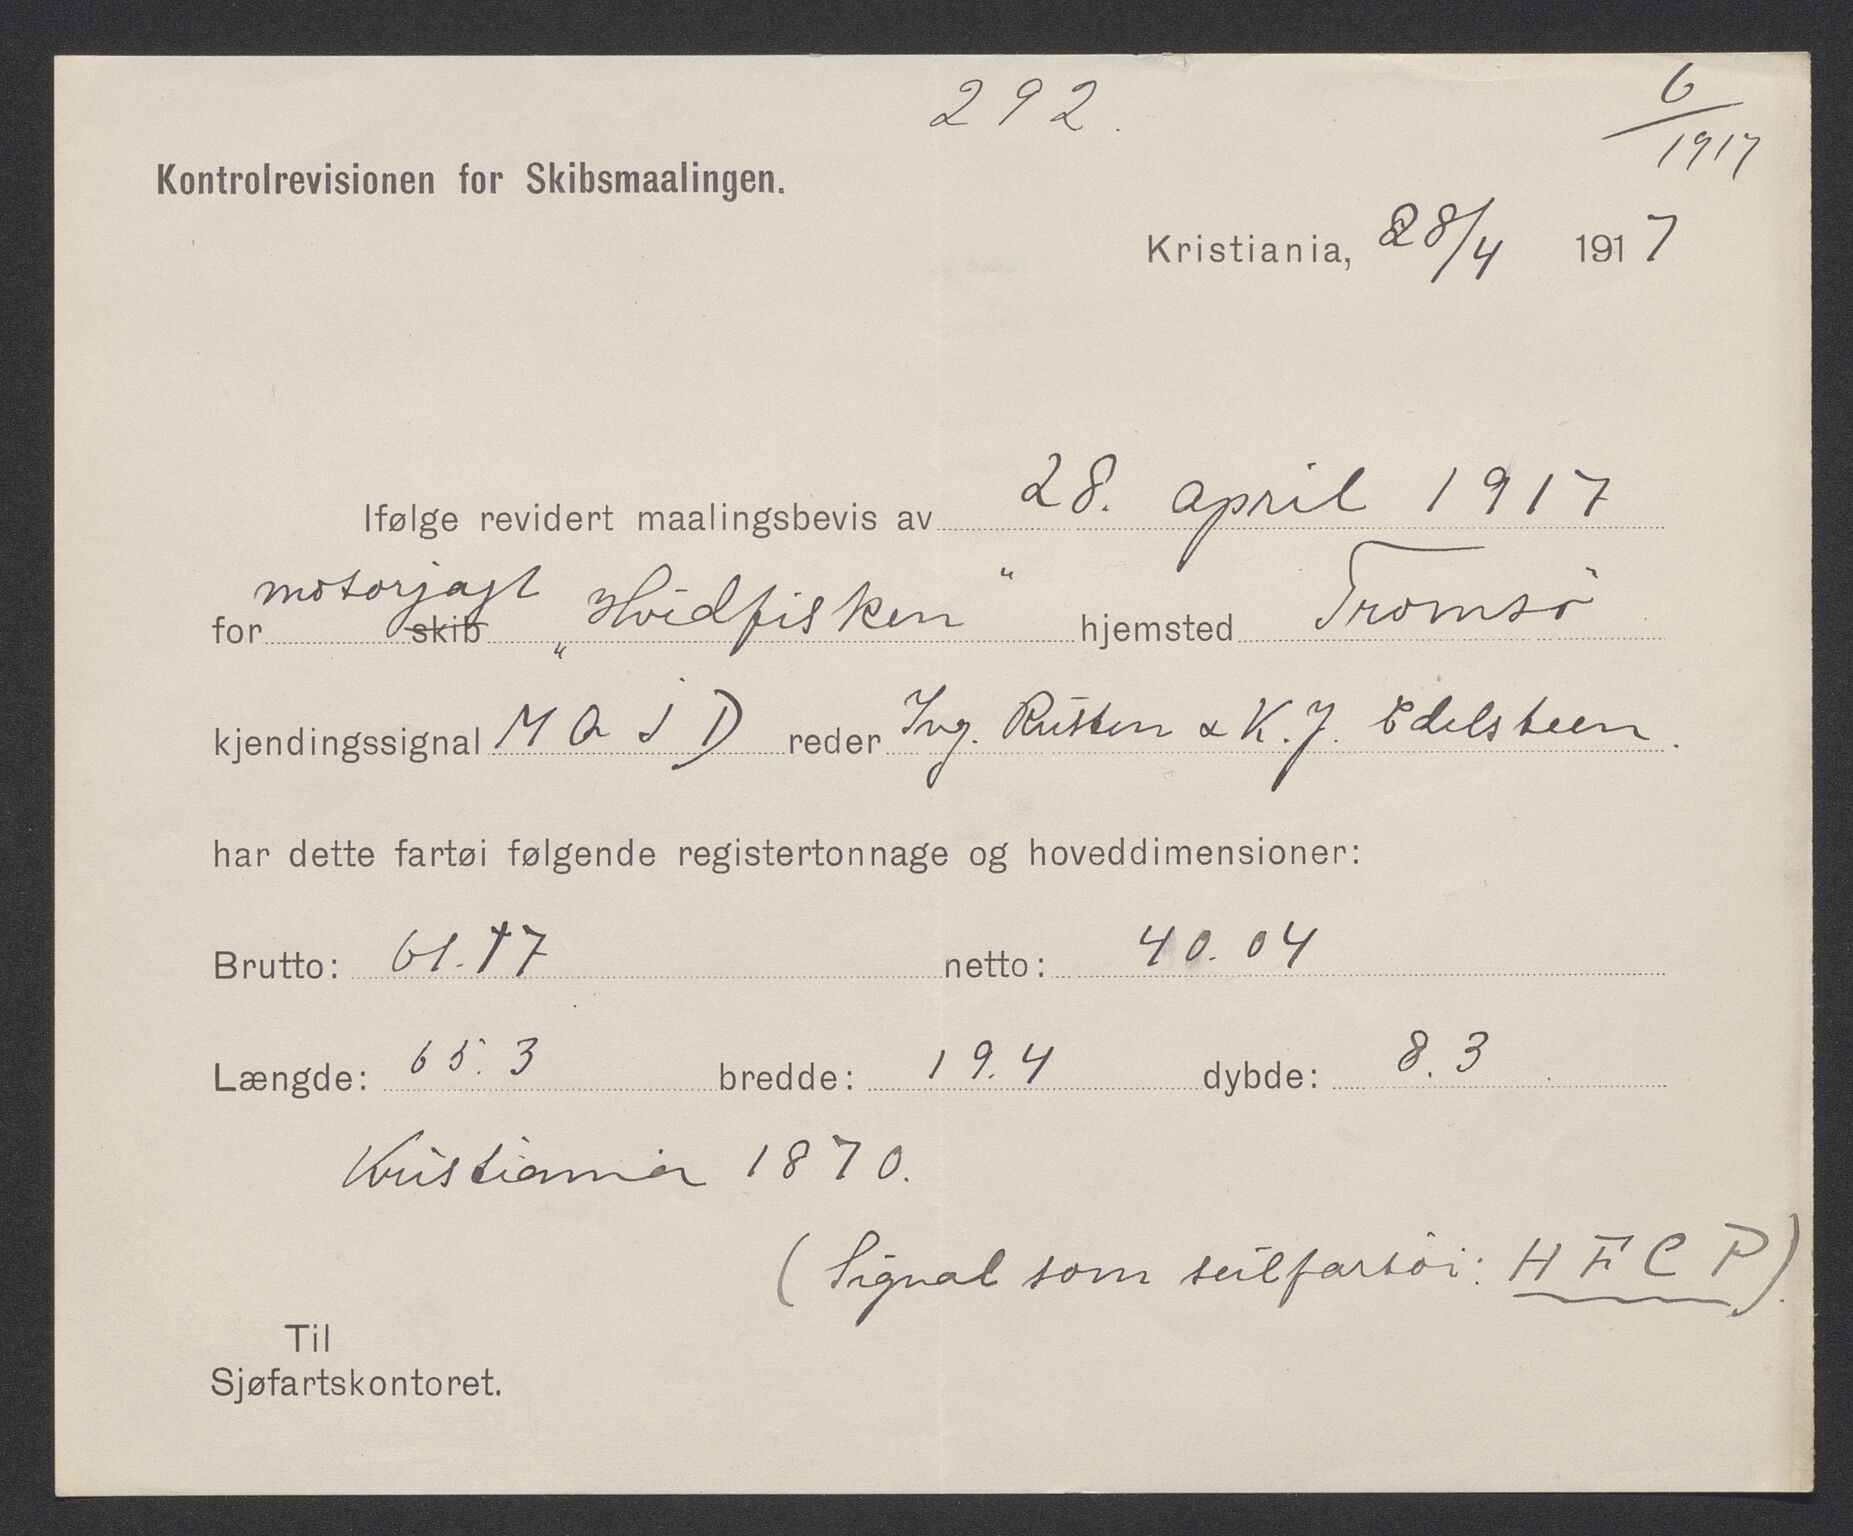 292.
6/1917
Kontrolrevisionen for Skibsmaalingen.
Kristiania, 28/4 1917
Ifølge revidert maalingsbevis av 28. april 1917
for motorjagt skib „Hvidfisken“ hjemsted Tromsö
kjendingssignal M Q J D reder Ing. Rusten & K. J. Edelsteen.
har dette fartøi følgende registertonnage og hoveddimensioner:
Brutto: 61.17 netto: 40.04
Længde: 65.3 bredde: 19.4 dybde: 8.3
Kristiania 1870.
(Signal som seilfartöi: H F C P)
Til
Sjøfartskontoret.